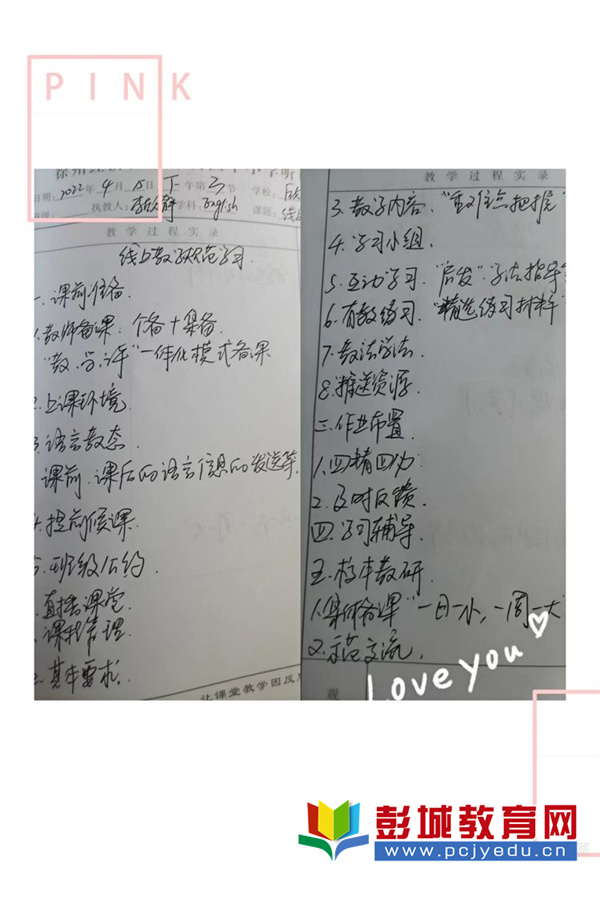 PINK
日期：2022年4月15日下午第三节 学校：
执教人：学科：English 课题：线上
教学过程实录
线上教学规范学习
一、课前准备
1.教师备课：个备+集备
"教、学、评"一体化模式备课
2.上课环境
3.语言教态
课前、课后的语言信息的发送等
4.提前候课
5.班级公约
直播课堂
课程管理
2.基本要求
让课堂教学因反思
教学过程实录
3.教学内容、"重难点把握"
4.学习小组
5.互动学习、"启发"学法指导
6.有效练习、"精选练习材料"
7.教法学法
8.推送资源
三、作业布置
1.四精四必
2.及时反馈
四、学习辅导
五、校本教研
1.集体备课"一日一小，一周一大"
2.示范交流
观
Love you
彭城教育网
www.pcjyedu.cn